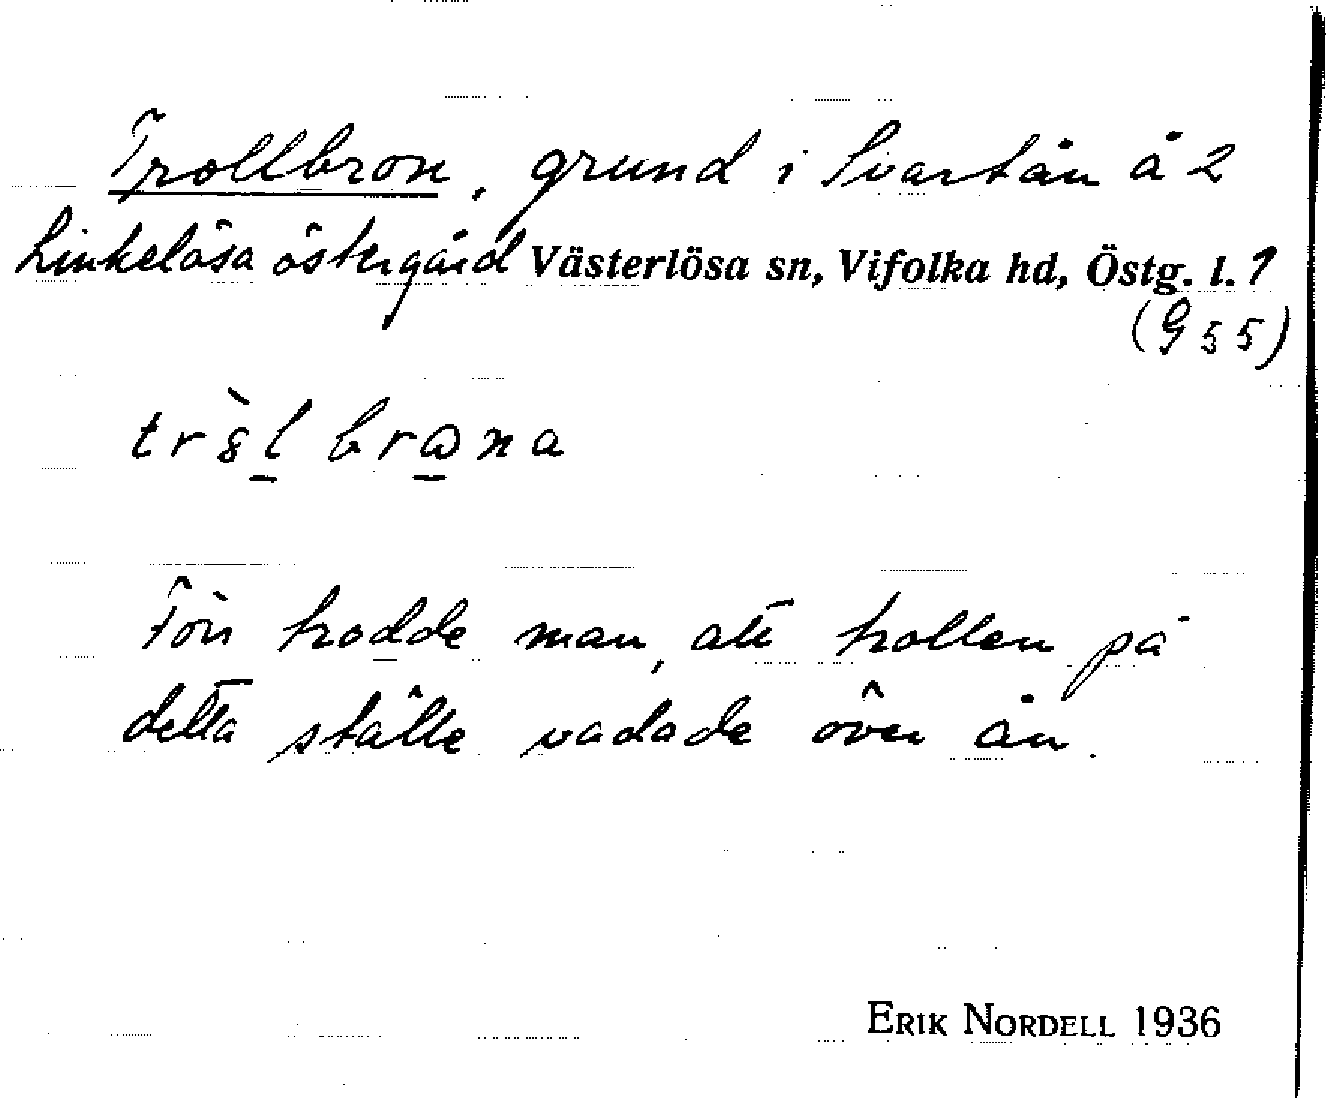 Trollbron, grund i Svartån å 2
Linkelösa östergård Västerlösa sn, Vifolka hd, Östg. l. 1
(G 55)
Förr trodde man, att trollen på
detta ställe vadade över ån.
ERIK NORDELL 1936